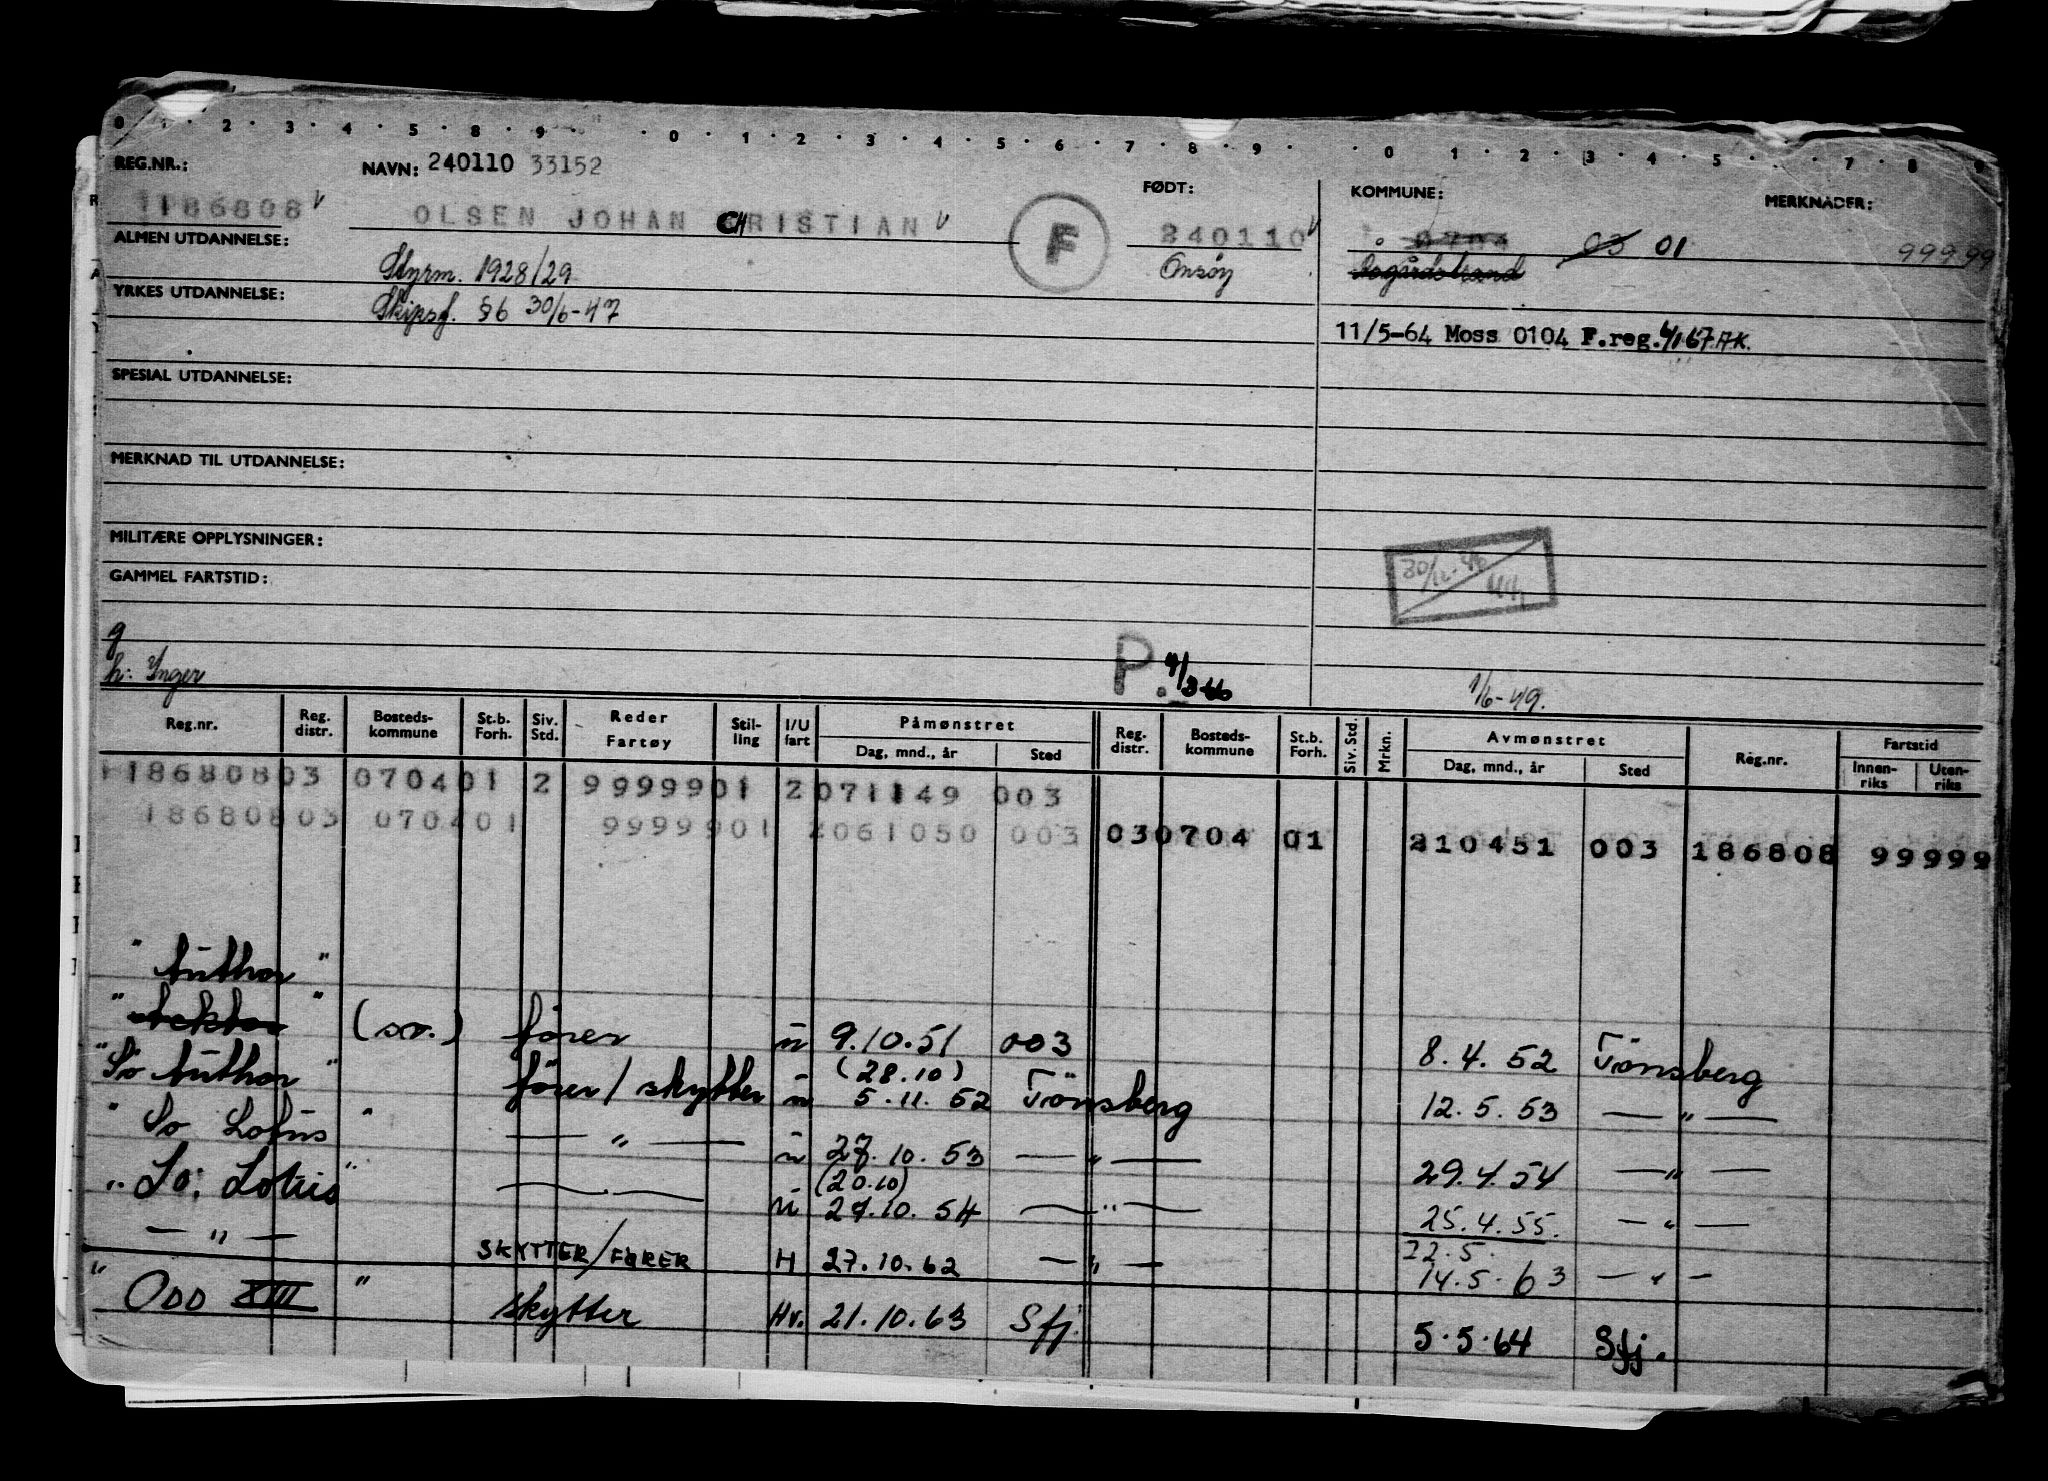 0 1 2 3 4 5 8 9 0 1 2 3 4 5 6 7 8 9 0 1 2 3 4 5 7 8 9
REG.NR.: NAVN: 240110 33152 FØDT: KOMMUNE: MERKNADER:
1186808 OLSEN JOHAN CHRISTIAN F 240110 0704 03 01 99999
ALMEN UTDANNELSE: Styrm. 1928/29 Onsøy Åsgårdstrand
YRKES UTDANNELSE: Skipsf. §6 30/6-47
11/5-64 Moss 0104 F.reg. 4/1 67 A.K.
SPESIAL UTDANNELSE:
MERKNAD TIL UTDANNELSE:
MILITÆRE OPPLYSNINGER:
30/12-46
GAMMEL FARTSTID:
g
h: Inger P. 4/3-66 1/6-49.
Reg.nr. Reg. distr. Bosteds-kommune St.b. Forh. Siv. Std. Reder Fartøy Stil-ling I/U fart Påmønstret Dag, mnd., år Sted Reg. distr. Bosteds-kommune St.b. Forh. Siv. Std. Mrkn. Avmønstret Dag, mnd., år Sted Reg.nr. Fartstid Innen-riks Uten-riks
118680803 070401 2 9999901 2071149 003
18680803 070401 9999901 2061050 003 030704 01 210451 003 186808 99999
"Author"
"(so.) fører u 9.10.51 003 8.4.52 Tönsberg
"So Author" fører/skytter u (28.10) 5.11.52 Tönsberg 12.5.53 — " —
"So Lotus" — " — u 27.10.53 — " — 29.4.54 — " —
"So. Lotus" — " — u (20.10) 27.10.54 — " — 25.4.55. — " —
— " — SKYTTER/FØRER H 27.10.62 — " — 22.5. 14.5.63 — " —
"ODD XIII" skytter Hv. 21.10.63 Sfj. 5.5.64 Sfj.